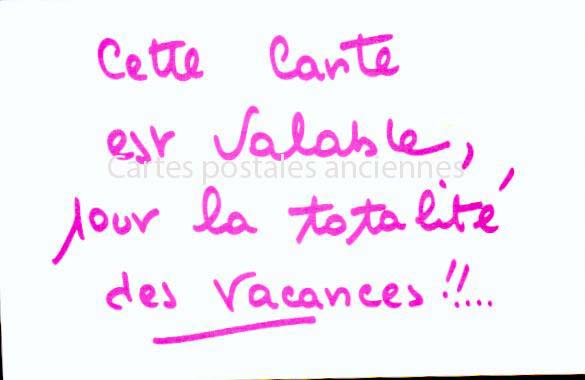 Cette Carte
est Valable,
Cartes postales anciennes
pour la totalité
des vacances !!...